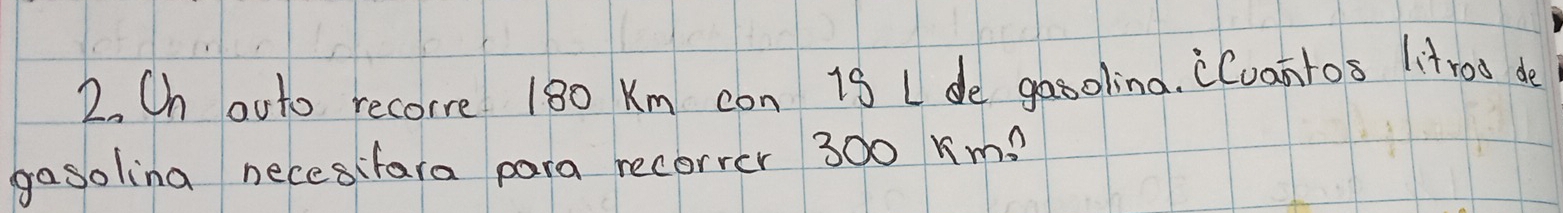 2. Un auto recorre 180 Km con 15 L de gasolina. ¿Cuantos litros de
gasolina necesitara para recorrer 300 Km?